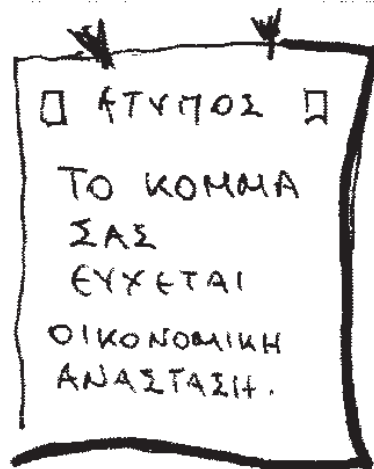 ΑΤΥΠΟΣ
ΤΟ ΚΟΜΜΑ
ΣΑΣ
ΕΥΧΕΤΑΙ
ΟΙΚΟΝΟΜΙΚΗ
ΑΝΑΣΤΑΣΗ.